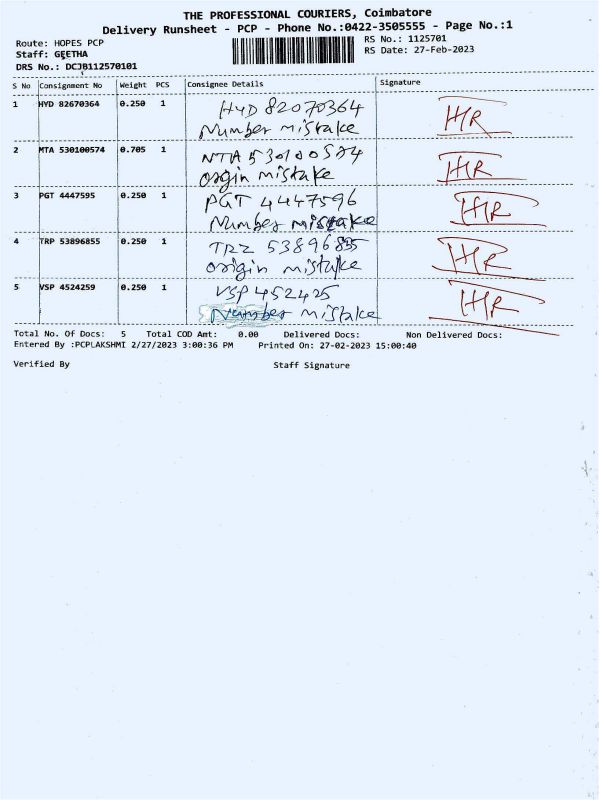 THE PROFESSIONAL COURIERS, Coimbatore
Delivery Runsheet - PCP - Phone No.:0422-3505555 - Page No.:1
Route: HOPES PCP
RS No.: 1125701
Staff: GEETHA
RS Date: 27-Feb-2023
DRS No.: DCJB112570101
S No Consignment No Weight PCS Consignee Details Signature
1 HYD 82670364 0.250 1 HYD 82070364 HR
Number mistake
2 MTA 530100574 0.705 1 NTA 530100574 HR
Origin mistake
3 PGT 4447595 0.250 1 PGT 4447596 HR
Number mistake
4 TRP 53896855 0.250 1 TRZ 53896855 HR
Origin mistake
5 VSP 4524259 0.250 1 VSP 452425 HR
Number mistake
Total No. Of Docs: 5 Total COD Amt: 0.00 Delivered Docs: Non Delivered Docs:
Entered By :PCPLAKSHMI 2/27/2023 3:00:36 PM Printed On: 27-02-2023 15:00:40
Verified By Staff Signature